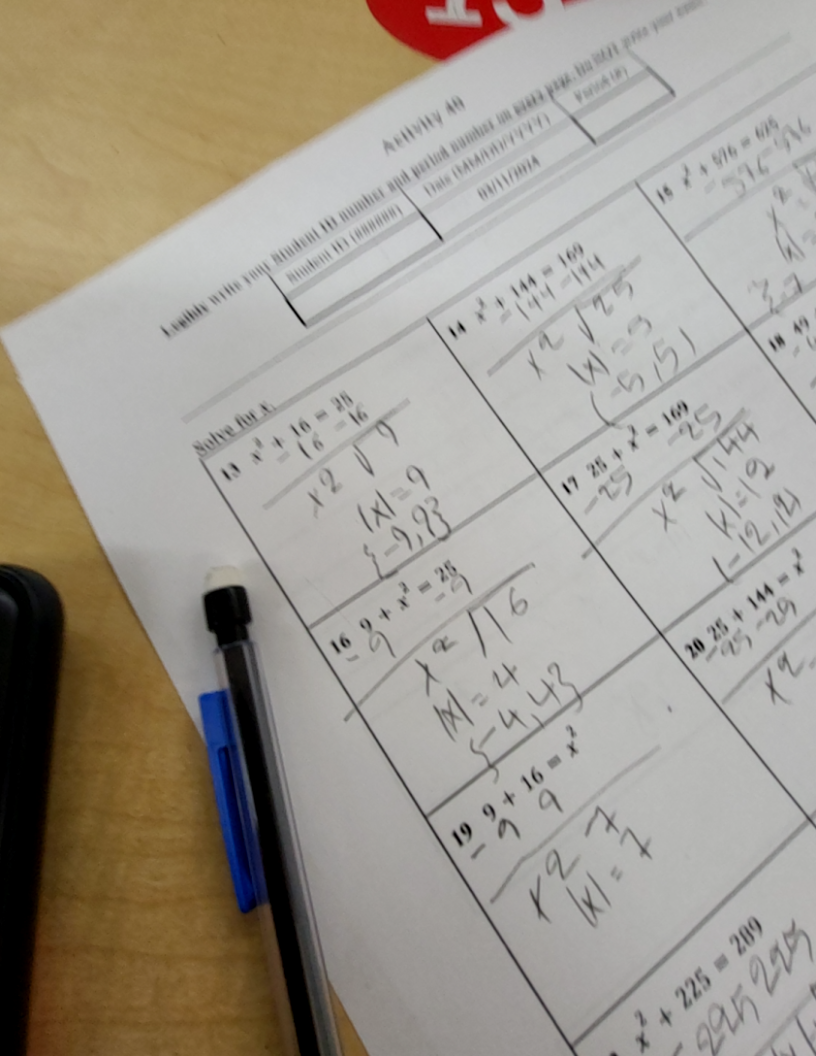 Activity 49
Legibly write your Student ID number and period number on
Student ID (######)
Date (MM/DD/YYYY)
Period (#)
03/11/2024
Solve for x.
13 x² + 16 = 25
-16 -16
x² √9
|x| = 9
{-9,9}
14 x² + 144 = 169
-144 -144
x² √25
|x| = 5
(-5,5)
15 x² + 576 = 625
-576 -576
x²
16 9 + x² = 25
-9 -9
x² √16
|x| = 4
{-4,4}
17 25 + x² = 169
-25 -25
x² √144
|x| = 12
(-12,12)
18 49
19 9 + 16 = x²
-9 9
x² 7
|x| = 7
20 25 + 144 = x²
-25 -25
x²
x² + 225 = 289
-225 225